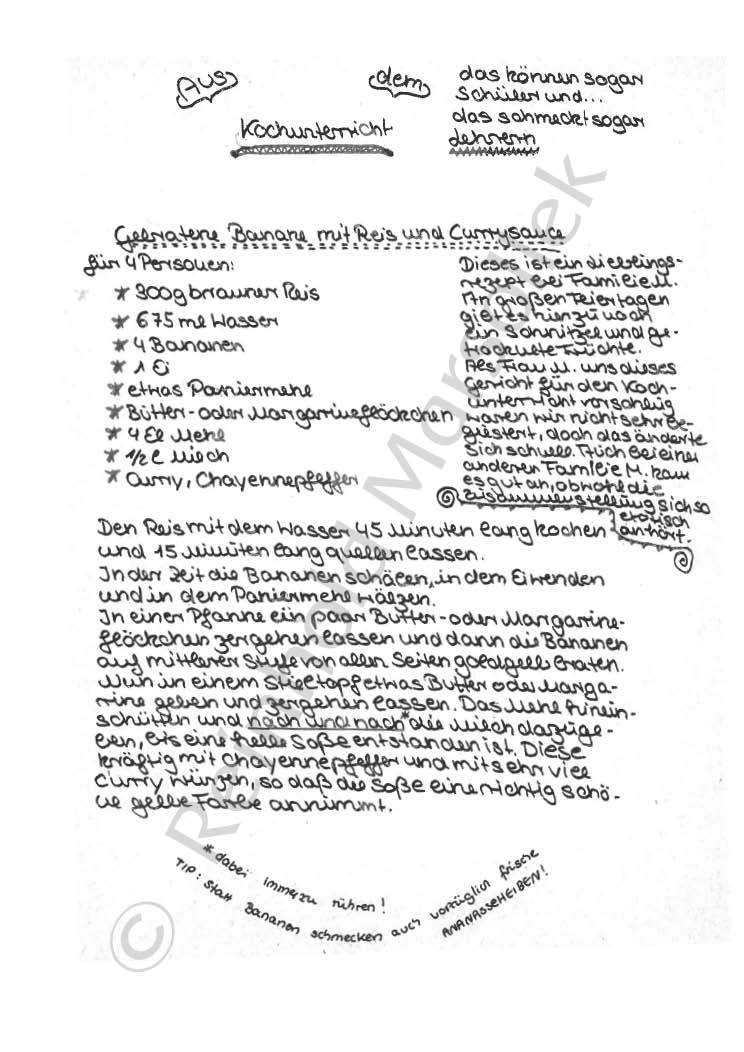 Aus dem
Kochunterricht
das können sogar
Schüler und...
das schmeckt sogar
Lehrern
Gebratene Banane mit Reis und Currysauce
für 4 Personen:
* 300g brauner Reis
* 675 ml Wasser
* 4 Bananen
* 1 Ei
* etwas Paniermehl
* Butter- oder Margarineflöckchen
* 4 El Mehl
* 1/2 l Milch
* Curry, Chayennepfeffer
Dieses ist ein Lieblings-
rezept bei Familie M.
An großen Feiertagen
gibt es hierzu noch
ein Schnitzel und ge-
trocknete Früchte.
Als Frau M. uns dieses
Gericht für den Koch-
unterricht vorschlug
waren wir nicht sehr be-
geistert, doch das änderte
sich schnell. Auch bei einer
anderen Familie M. kam
es gut an, obwohl die
Zusammenstellung sich so
exotisch
anhört.
Den Reis mit dem Wasser 45 Minuten lang kochen
und 15 Minuten lang quellen lassen.
In der Zeit die Bananen schälen, in dem Ei wenden
und in dem Paniermehl wälzen.
In einer Pfanne ein paar Butter- oder Margarine-
flöckchen zergehen lassen und dann die Bananen
auf mittlerer Stufe von allen Seiten goldgelb braten.
Nun in einem Stieltopf etwas Butter oder Marga-
rine geben und zergehen lassen. Das Mehl hinein-
schütten und nach und nach* die Milch dazuge-
ben, bis eine helle Soße entstanden ist. Diese
kräftig mit Chayennepfeffer und mit sehr viel
Curry würzen, so daß die Soße eine richtig schö-
ne gelbe Farbe annimmt.
* dabei immerzu rühren!
TIP: Statt Bananen schmecken auch vorzüglich frische
ANANASSCHEIBEN!
© Reinhold Marsollek